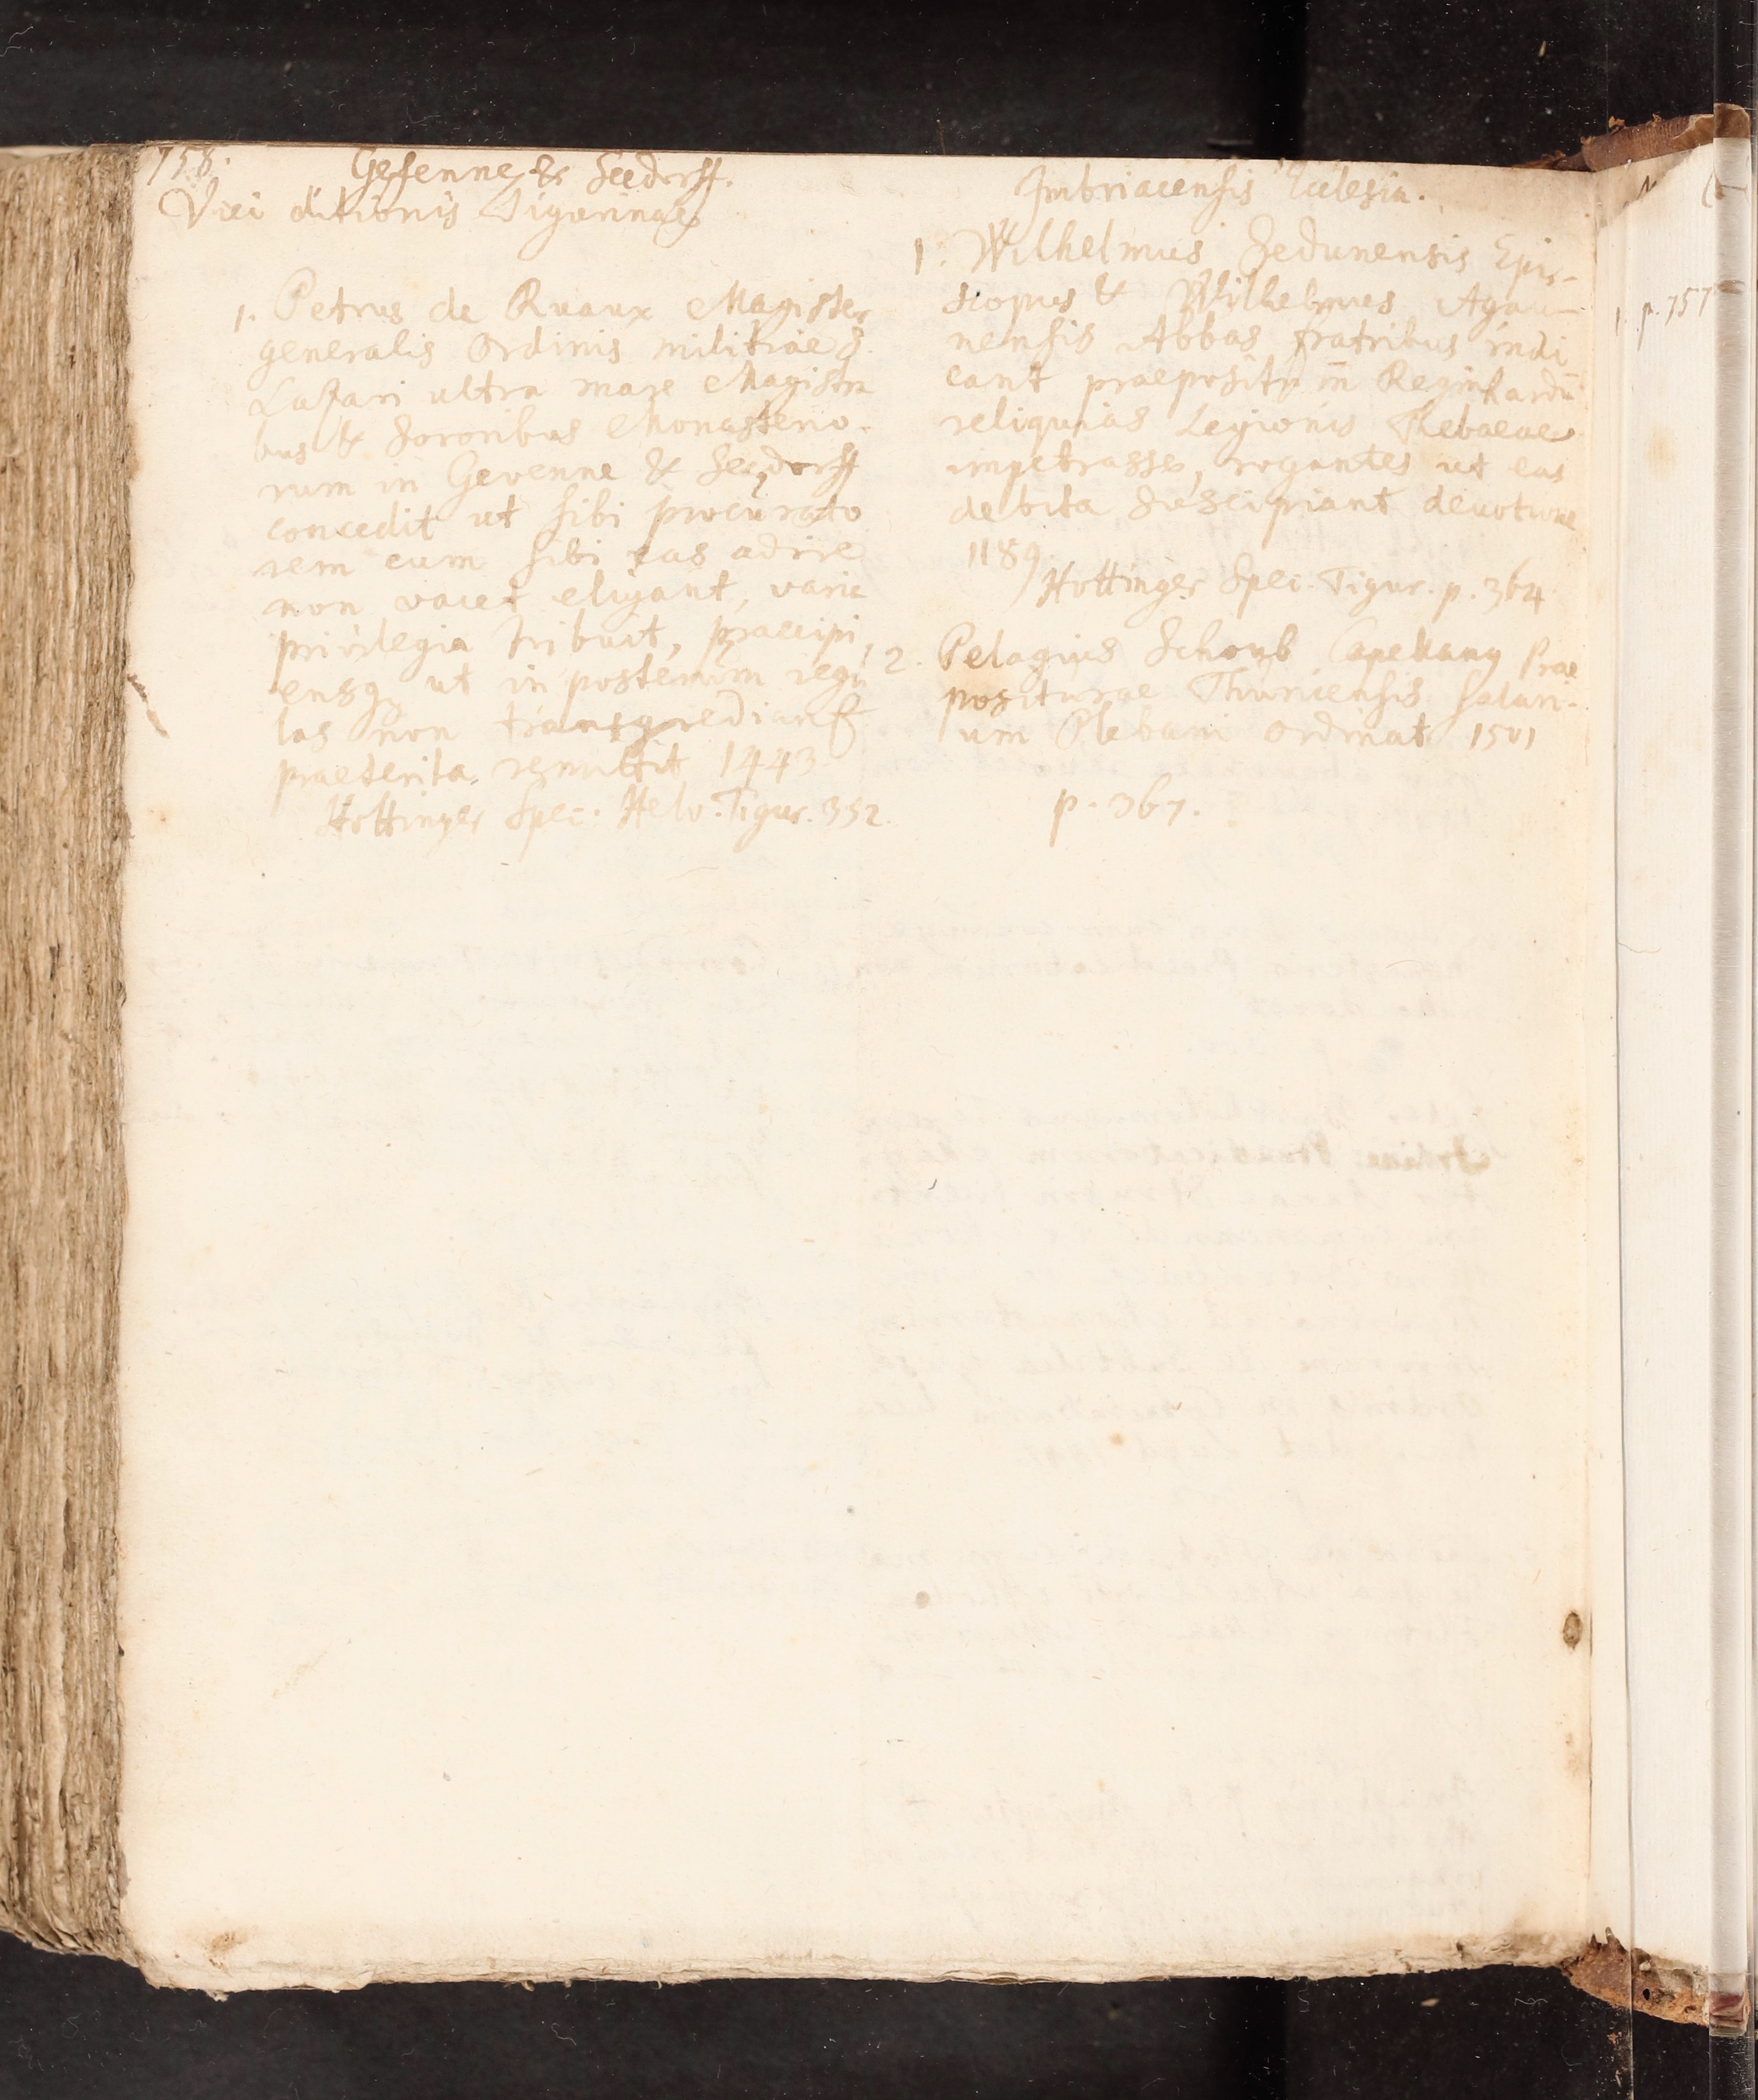 758.
Gefenne & Seedorff.
Vici ditionis Tigurinae
1. Petrus de Ruaux Magister
generalis Ordinis militiae S.
Lazari ultra mare Magistra
bus & Sororibus Monasterio-
rum in Gevenne & Seedorff
concedit ut sibi procurato
rem cum sibi eas adire
non vacet eligant, varia
privilegia tribuit, praecipi,
ensq ut in posterum regu
las non transgrediant
praeterita remittit 1443
Hottinger Spec. Helv. Tigur. 352.
Imbriacensis Ecclesia.
1. Wilhelmus Sedunensis Epis-
scopus & Wilhelmus Agau-
nensis Abbas fratribus indi
cant praepositū Reginhardū
reliquias Legionis Thebaeae
impetrasse, rogantes ut eas
debita suscipiant devotione
1189.
Hottinger Spec. Tigur. p. 364
2. Pelagius Schoub Capellanus Prae
positurae Thuricensis Salari-
um Plebani ordinat 1501
p. 367.
1. p. 757